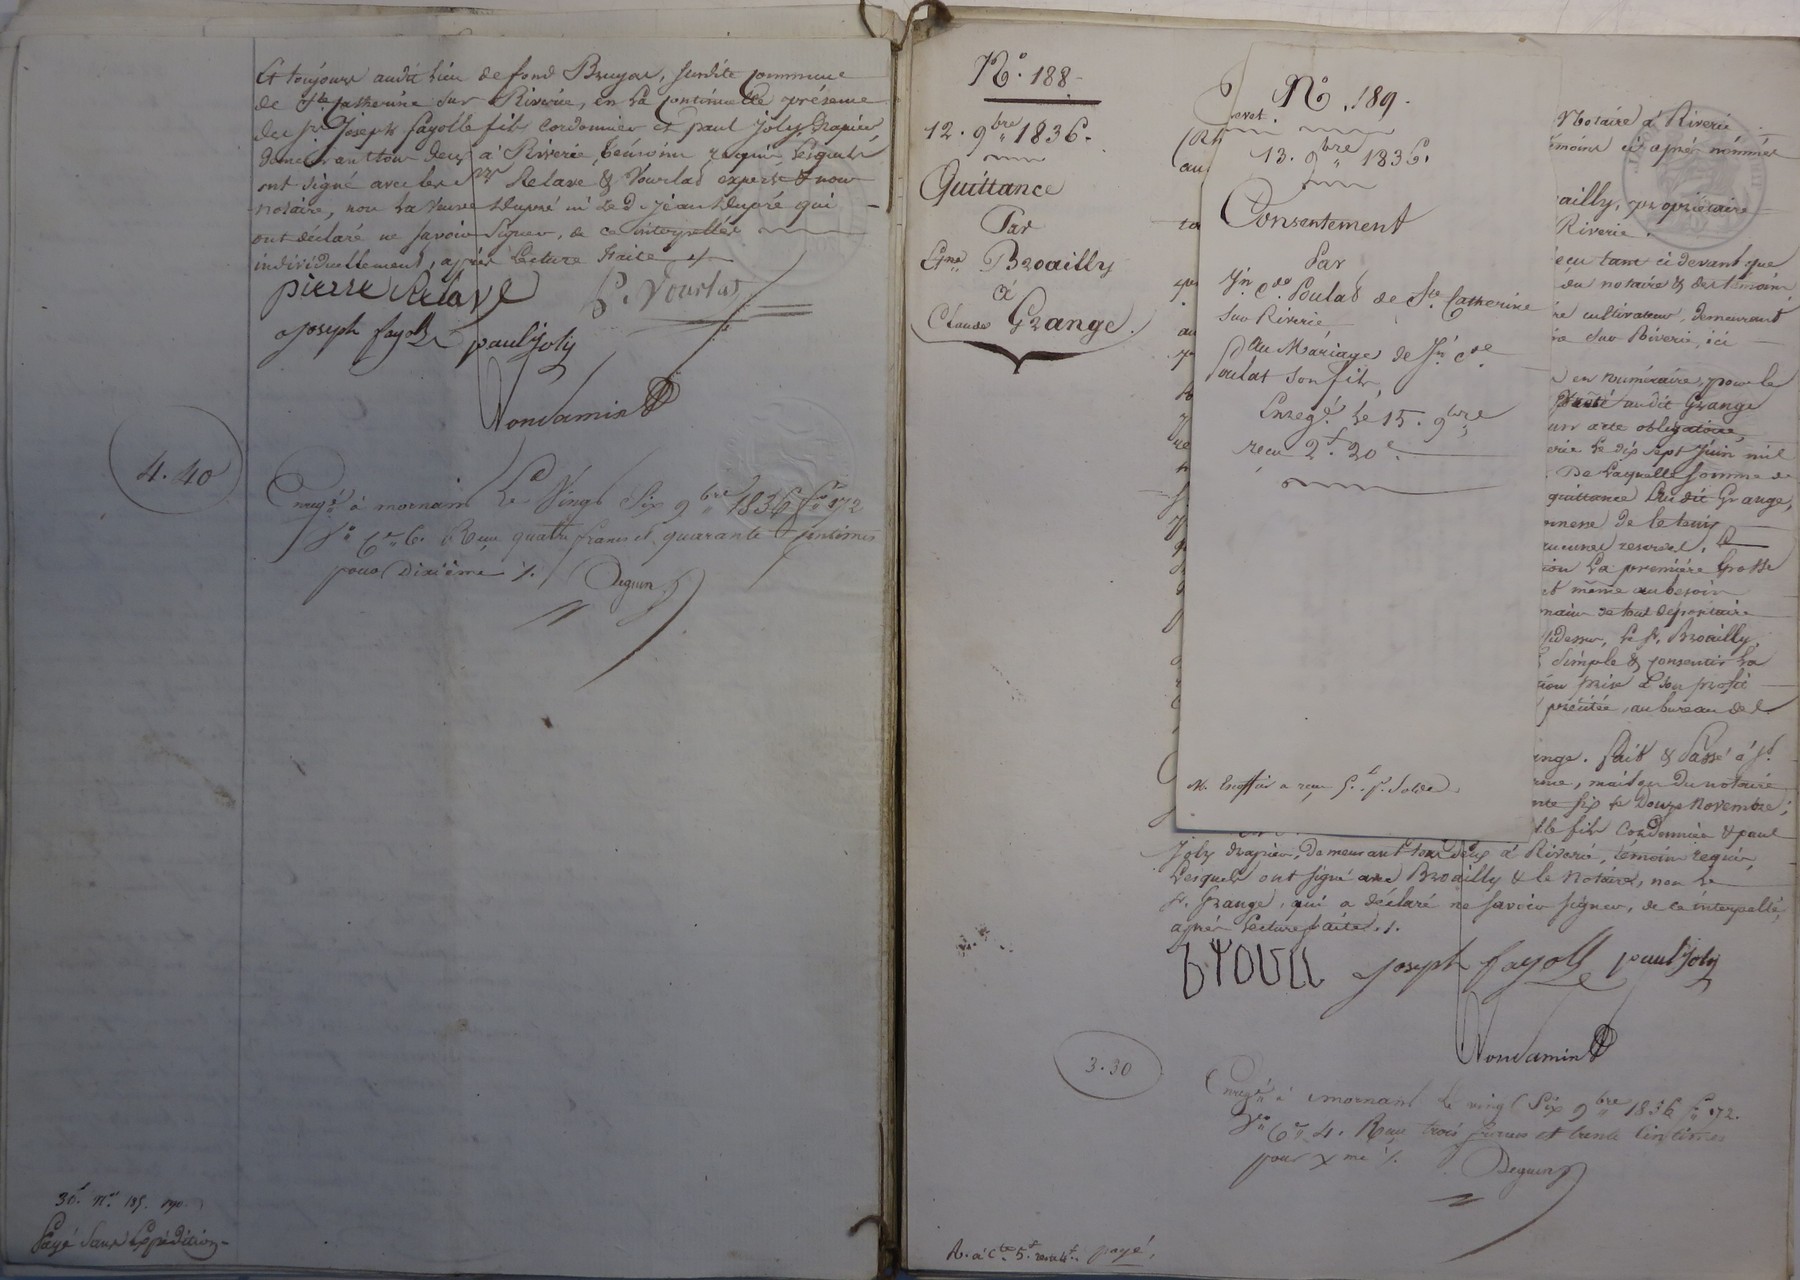 Et toujours audit lieu de fond Bruyas, susdite commune
de Ste Catherine sur Riverie, en la continuelle présence
des srs Joseph Fayolle fils cordonnier et paul Joly, Drapier,
demeurant tous deux à Riverie, témoins requis, lesquels
ont signé avec les srs Relave & Vourlat experts & nous
notaire, non la veuve Dupré ni le d. Jean Dupré qui
ont déclaré ne savoir signer, de ce interpellés
individuellement, après lecture faite
pierre Relave
Vourlat
joseph fayolle
paul joly
4.40
Enregé à mornant Le Vingt Six 9bre 1836 fo 172
Vo Ce 6. Reçu quatre francs et quarante centimes
pour Dixième /.
Deguin
30f. Nos 185. 190
Payé Sans Expédition
No. 188
12. 9bre 1836.
Quittance
Par
Broailly
à
Claude Grange.
No. 189.
13. 9bre 1836.
Consentement
Par
Jn Cde Poulat de Ste Catherine
sur Riverie
Au Mariage de Jn Cde
Poulat son fils
Enregé. Le 15. 9bre
reçu 2f. 20c.
a reçu 5f. p. Solde
Notaire à Riverie
témoins ci après nommés
ailly, propriétaire
Riverie.
reçu tant ci devant que
du notaire & des témoins
cultivateur, demeurant
sur Riverie, ici
en numéraire, pour le
audit Grange
acte obligatoire,
le dix sept Juin mil
De laquelle somme de
quittance Ledit Grange,
de le tenir
aucunes reserves.
La première Grosse
et même au besoin
de tout dépositaire
dessus, le s. Broailly,
simple & consentir la
prise à son profit
au bureau de
Grange. fait & Passé à
maison du notaire
six le Douze Novembre;
fils cordonnier & paul
Joly drapier, demeurant tous deux à Riverie, témoins requis,
Lesquels ont signé avec Broailly & le Notaire, non le
s. Grange, qui a déclaré ne savoir signer, de ce interpellé,
après Lecture faite. /.
joseph fayolle paul joly
3.30
Enregé à mornant le vingt Six 9bre 1836 fo 172.
Vo Ce 4. Reçu trois francs et trente centimes
pour Xme /.
Deguin
payé.